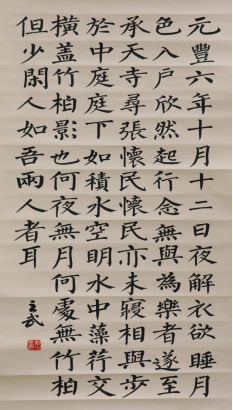 元豐六年十月十二日夜解衣欲睡月
色入戶欣然起行念無與為樂者遂至
承天寺尋張懷民懷民亦未寢相與步
於中庭庭下如積水空明水中藻荇交
橫蓋竹柏影也何夜無月何處無竹柏
但少閑人如吾兩人者耳